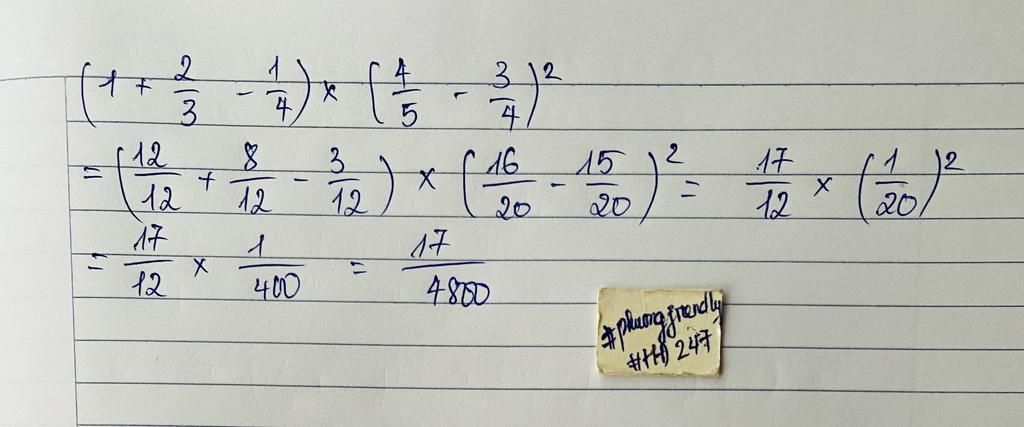 (1 + 2/3 - 1/4) × (4/5 - 3/4)²
= (12/12 + 8/12 - 3/12) × (16/20 - 15/20)² = 17/12 × (1/20)²
= 17/12 × 1/400 = 17/4800
#phuongfriendly
#HĐ 247